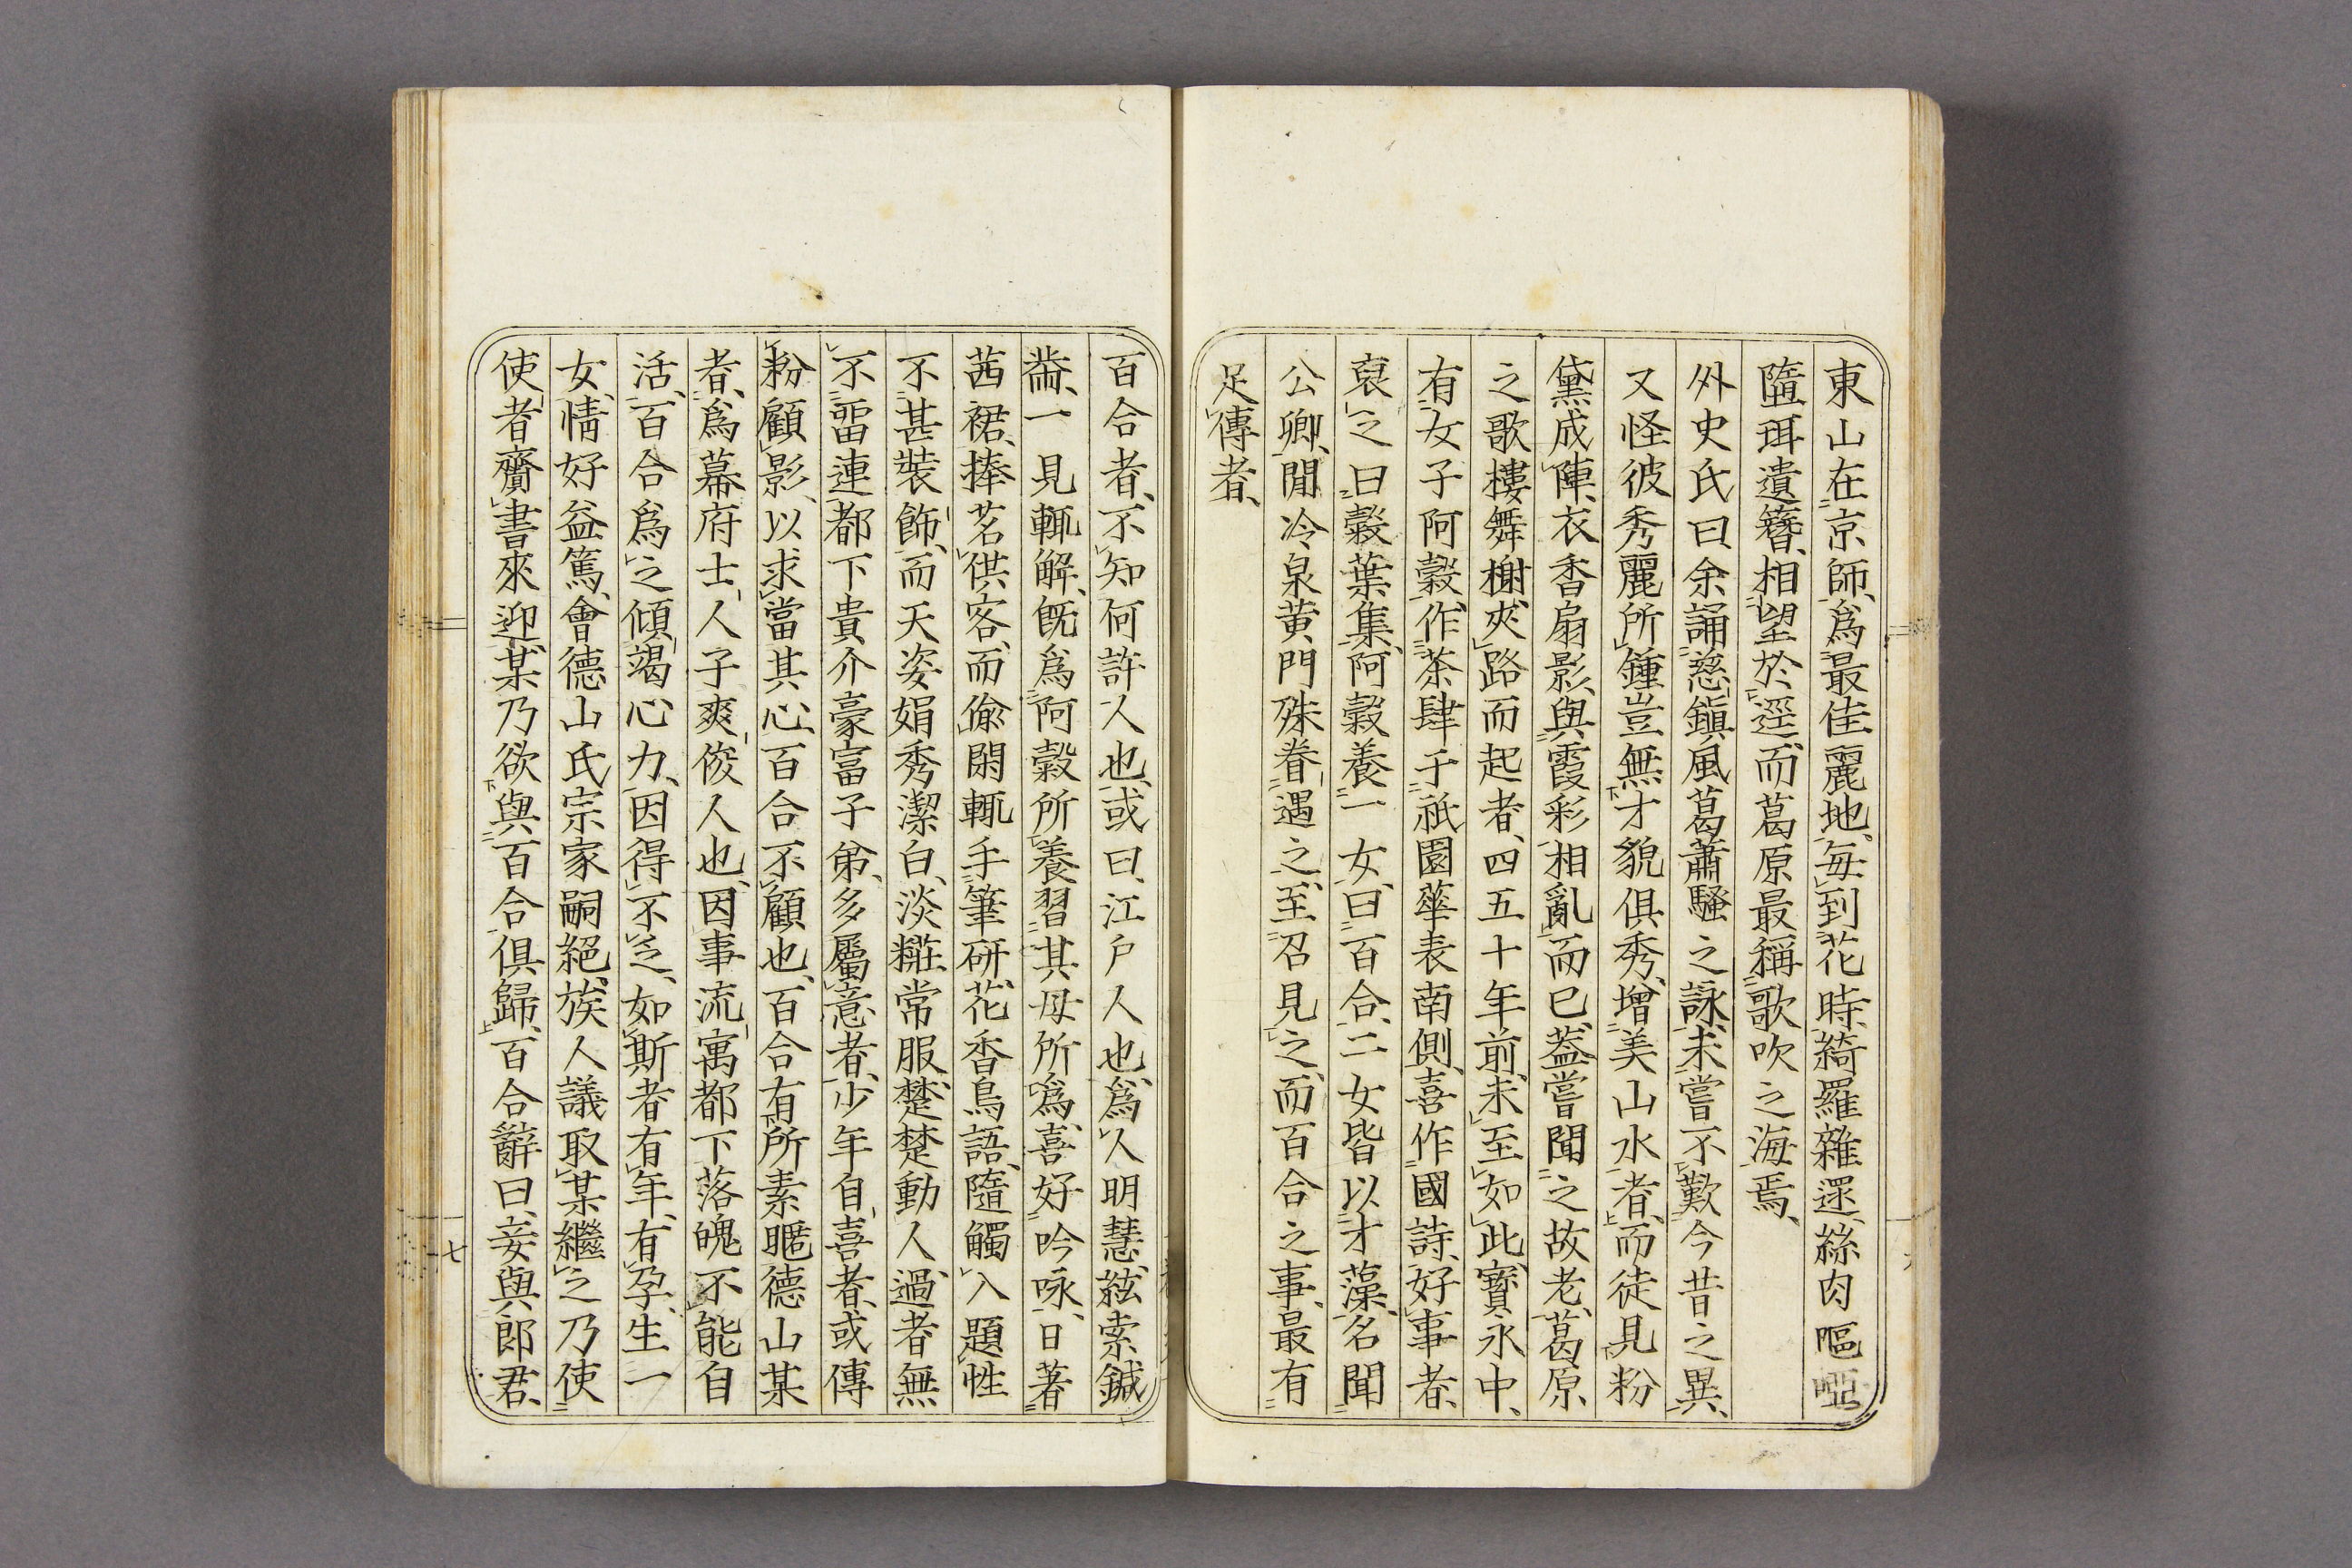 東山在京師、爲最佳麗地、毎到花時、綺羅雜遝、絲肉嘔啞
墮珥遺簪、相望於逕、而葛原最稱歌吹之海焉、
外史氏曰、余誦慈鎭風葛蕭騷之詠、未嘗不歎今昔之異、
又怪彼秀麗所鍾豈無才貌俱秀、增美山水者、而徒見粉
黛成陣、衣香扇影、與霞彩相亂而已、蓋嘗聞之故老、葛原
之歌樓舞榭、夾路而起者、四五十年前、未至如此、寶永中、
有女子阿榖、作茶肆于祇園華表南側、喜作國詩、好事者、
裒之曰榖葉集、阿榖養一女、曰百合、二女皆以才藻、名聞
公卿、間冷泉黄門殊眷遇之、至召見之、而百合之事、最有
足傳者、
百合者、不知何許人也、或曰、江戶人也、爲人明慧、絃索鍼
黹、一見輒解、既爲阿榖所養習其母所爲、喜好吟咏、日著
茜裙、捧茗供客、而偸閑輒手筆研、花香鳥語、隨觸入題、性
不甚裝飾、而天姿娟秀潔白、淡糚常服、楚楚動人、過者無
不畱連都下貴介豪富子弟、多屬意者、少年自喜者、或傳
粉顧影、以求當其心、百合不顧也、百合有所素暱德山某
者、爲幕府士人子爽俊人也、因事流寓都下落魄不能自
活、百合爲之傾竭心力、因得不乏、如斯者有年、有孕、生一
女、情好益篤、會德山氏宗家嗣絕、族人議取某繼之乃使
使者齎書來迎、某乃欲與百合俱歸、百合辭曰、妾與郎君、
七